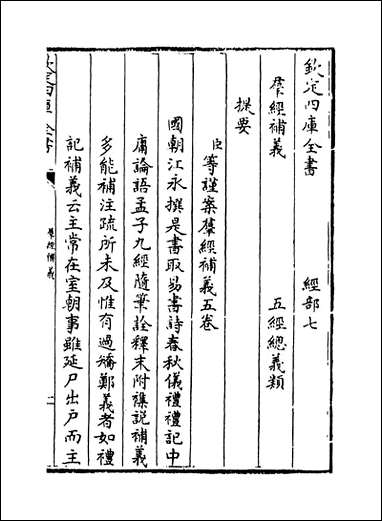 欽定四庫全書　經部七
羣經補義　五經總義類
提要
臣等謹案羣經補義五卷
國朝江永撰是書取易書詩春秋儀禮禮記中
庸論語孟子九經隨筆詮釋末附襍説補義
多能補注疏所未及惟有過矯鄭義者如禮
記補義云主常在室朝事雖延尸出戶而主
羣經補義